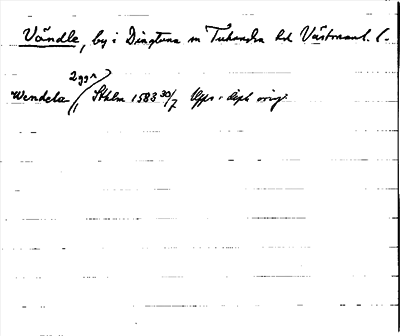 Vändle, by i Dingtuna sn Tuhundra hd Västmanl. l.
2 ggr
Wendela / Sthlm 1583 30/7 Upps. dipl. orig.